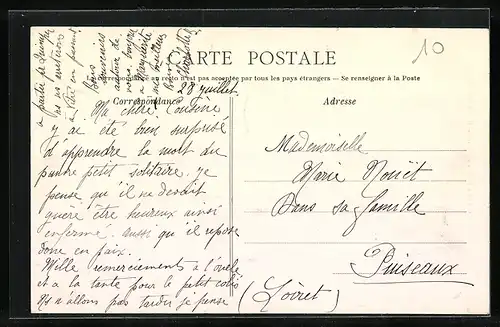 CARTE POSTALE
La correspondance au recto n'est pas acceptée par tous les pays étrangers — Se renseigner à la Poste
Correspondance
Adresse
28 juillet
Ma chère Cousine
j'ai été bien surprise
d'apprendre la mort du
pauvre petit solitaire. je
pense qu'il ne devait
guère être heureux ainsi
enfermé. aussi qu'il repose
donc en paix.
Mille remerciements à l'oncle
et a la tante pour le petit colis
Ns n'allons pas tarder je pense
Bons
souvenirs
autour de
vous
Mademoiselle
Marie Nouët
Dans sa famille
Puiseaux
(Loiret)
10